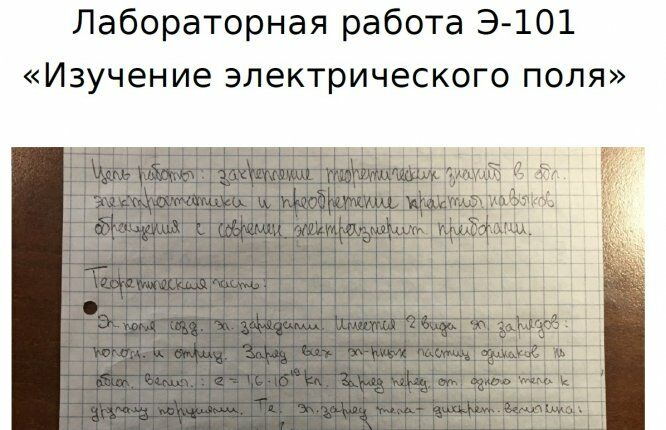 Лабораторная работа Э-101
«Изучение электрического поля»
Цель работы: закрепление теоретических знаний в обл.
электростатики и преобретение практич. навыков
обращения с современ. электроизмерит. приборами.
Теоретическая часть:
Эл. поля созд. эл. зарядами. Имеется 2 вида эл. зарядов:
полож. и отриц. Заряд всех эл-рных частиц одинаков по
абсол. велич.: e = 1,6·10¹⁹ Кл. Заряд перед. от одного тела к
другому порциями. Т.е. эл. заряд тела - дискрет. величина: